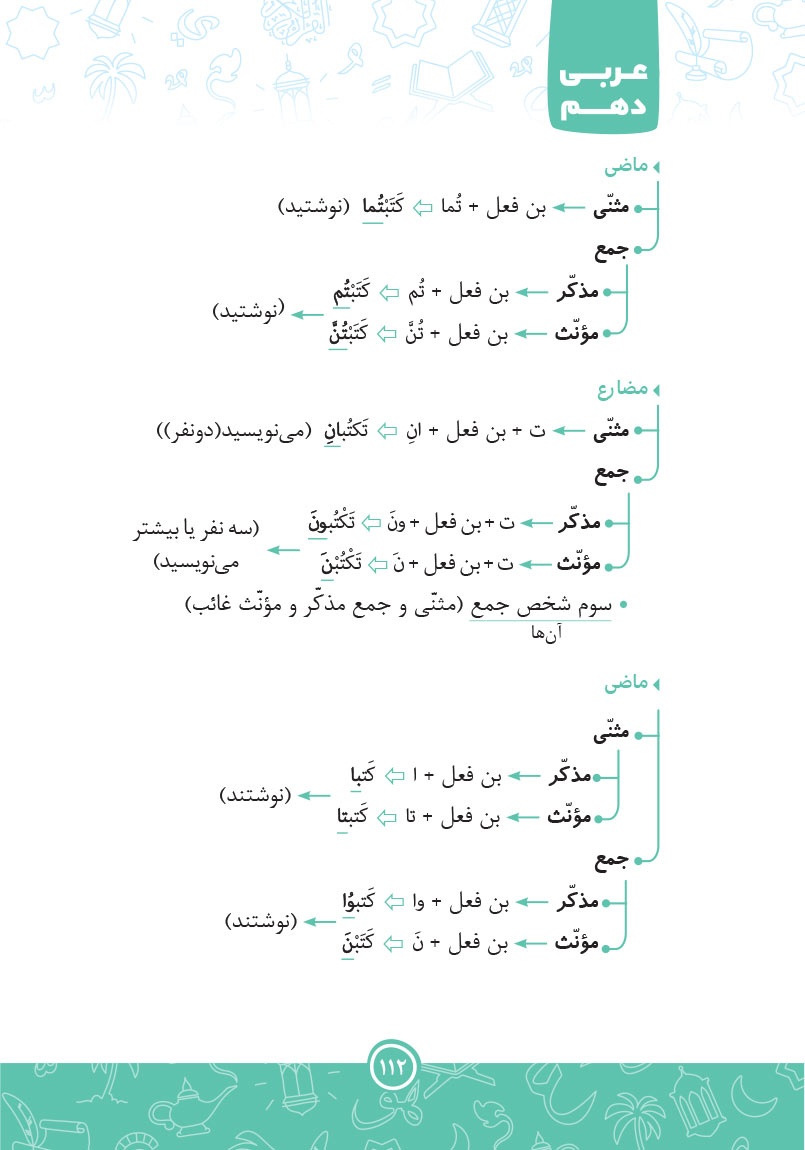 عربی
دهم
ماضی
مثنّی ← بن فعل + تُما ⇦ کَتَبْتُما (نوشتید)
جمع
مذکّر ← بن فعل + تُم ⇦ کَتَبْتُم
(نوشتید)
مؤنّث ← بن فعل + تُنَّ ⇦ کَتَبْتُنَّ
مضارع
مثنّی ← ت + بن فعل + انِ ⇦ تَکتُبانِ (می‌نویسید(دونفر))
جمع
مذکّر ← ت + بن فعل + ونَ ⇦ تَکْتُبونَ
مؤنّث ← ت + بن فعل + نَ ⇦ تَکْتُبْنَ
(سه نفر یا بیشتر
می‌نویسید)
• سوم شخص جمع (مثنّی و جمع مذکّر و مؤنّث غائب)
آن‌ها
ماضی
مثنّی
مذکّر ← بن فعل + ا ⇦ کَتبا
(نوشتند)
مؤنّث ← بن فعل + تا ⇦ کَتبتا
جمع
مذکّر ← بن فعل + وا ⇦ کَتبوُا
(نوشتند)
مؤنّث ← بن فعل + نَ ⇦ کَتَبْنَ
۱۱۲